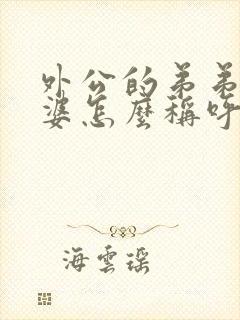 外公的弟弟
婆怎麼稱呼
海雲瑶